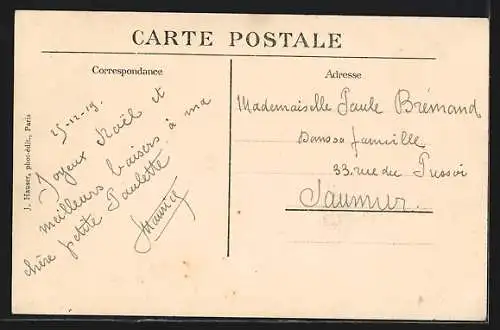 CARTE POSTALE
Correspondance
25-12-19.
Joyeux Noël et
meilleurs baisers à ma
chère petite Paulette
Maurice
J. Hauser, phot-édit., Paris
Adresse
Mademoiselle Paule Brémand
33, rue du Pressoir
Saumur